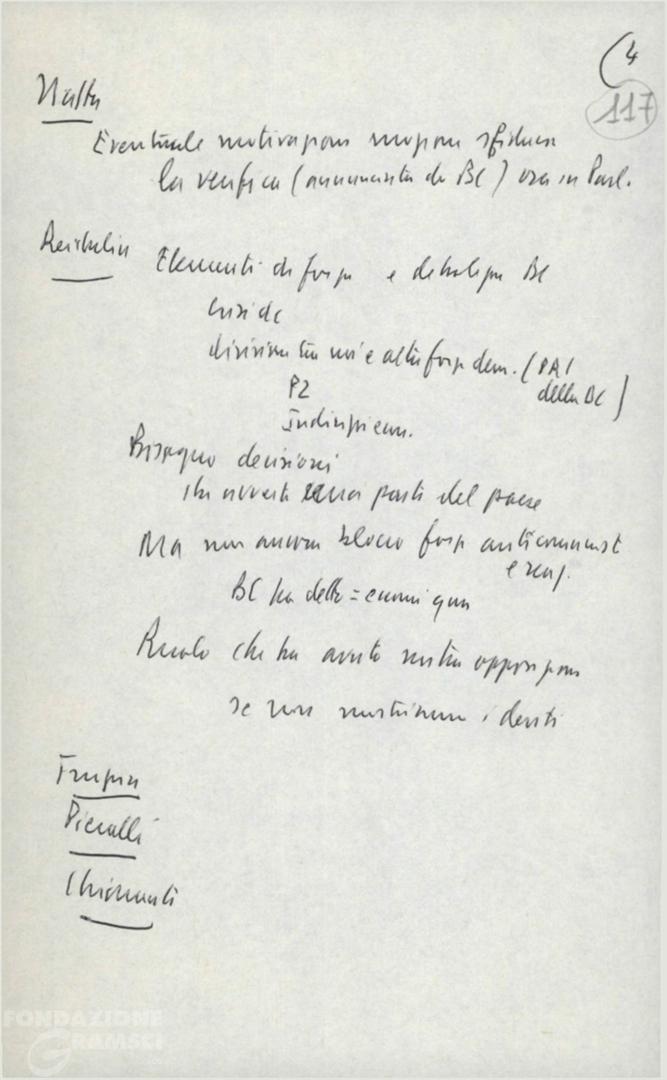 (4
117
Natta
Eventuale motivazione mozione sfiducia
la verifica (annunciata da BC) ora in Parl.
Reichlin
Elementi di forza e debolezza BC
crisi dc
divisione tra noi e altre forze dem. (PAI
della BC)
P2
Bisogno decisioni
che avverte parti del paese
Ma non ancora blocco forze anticomunist
e reaz.
BC ha detto = eccomi qua
Ruolo che ha avuto nostra opposizione
se non mostriamo i denti
Pieralli
Chiaromonte
FONDAZIONE
GRAMSCI